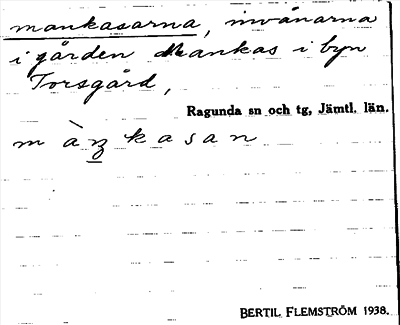 mankasarna, invånarna
i gården Mankas i byn
Torsgård,
Ragunda sn och tg, Jämtl. län.
m à n̲ k a s a n
BERTIL FLEMSTRÖM 1938.